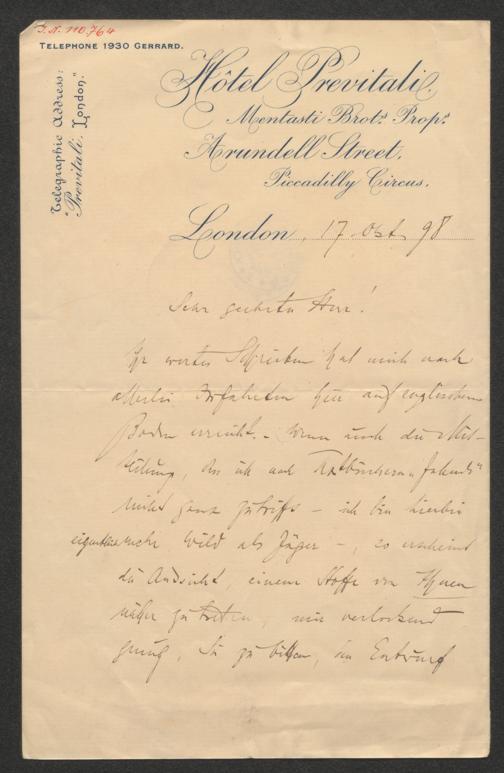 I.N. 110.764
TELEPHONE 1930 GERRARD.
Telegraphic Address:
"Previtali. London."
Hôtel Previtali.
Mentasti Brots. Props.
Arundell Street.
Piccadilly Circus.
London, 17 Oct. 98
Sehr geehrter Herr!
Ihr wertes Schreiben hat mich nach
allerlei Irrfahrten hier auf englischem
Boden erreicht. Wenn auch die Mit-
teilung, daß ich nach Textbüchern „fahnde"
nicht ganz zutrifft – ich bin hierbei
eigentlich mehr Wild als Jäger –, so erscheint
die Aussicht, einem Stoffe von Ihnen
näher zu treten, mir verlockend
genug, Sie zu bitten, den Entwurf